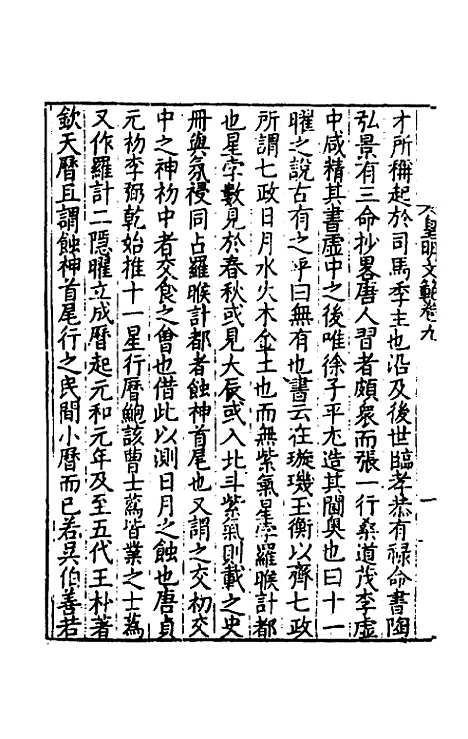 皇明文範卷九
一
才所稱起於司馬季主也沿及後世臨孝恭有祿命書陶
弘景有三命抄畧唐人習者頗衆而張一行桑道茂李虛
中咸精其書虛中之後唯徐子平尤造其閫奥也曰十一
曜之說古有之乎曰無有也書云在璇璣玉衡以齊七政
所謂七政日月水火木金土也而無紫氣星孛羅睺計都
也星孛數見於春秋或見大辰或入北斗紫氣則載之史
册與氛祲同占羅睺計都者蝕神首尾也又謂之交初交
中之神初中者交食之會也借此以測日月之蝕也唐貞
元初李弼乾始推十一星行曆鮑該曹士蒍皆業之士蒍
又作羅計二隱曜立成曆起元和元年及至五代王朴著
欽天曆且謂蝕神首尾行之民間小曆而已若吴伯善若